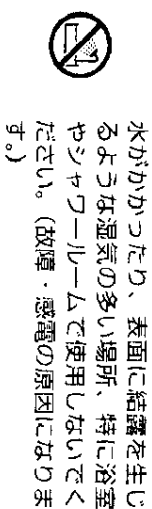 水がかかったり、表面に結露を生じ
るような湿気の多い場所、特に浴室
やシャワールームで使用しないでく
ださい。（故障・感電の原因になりま
す。）